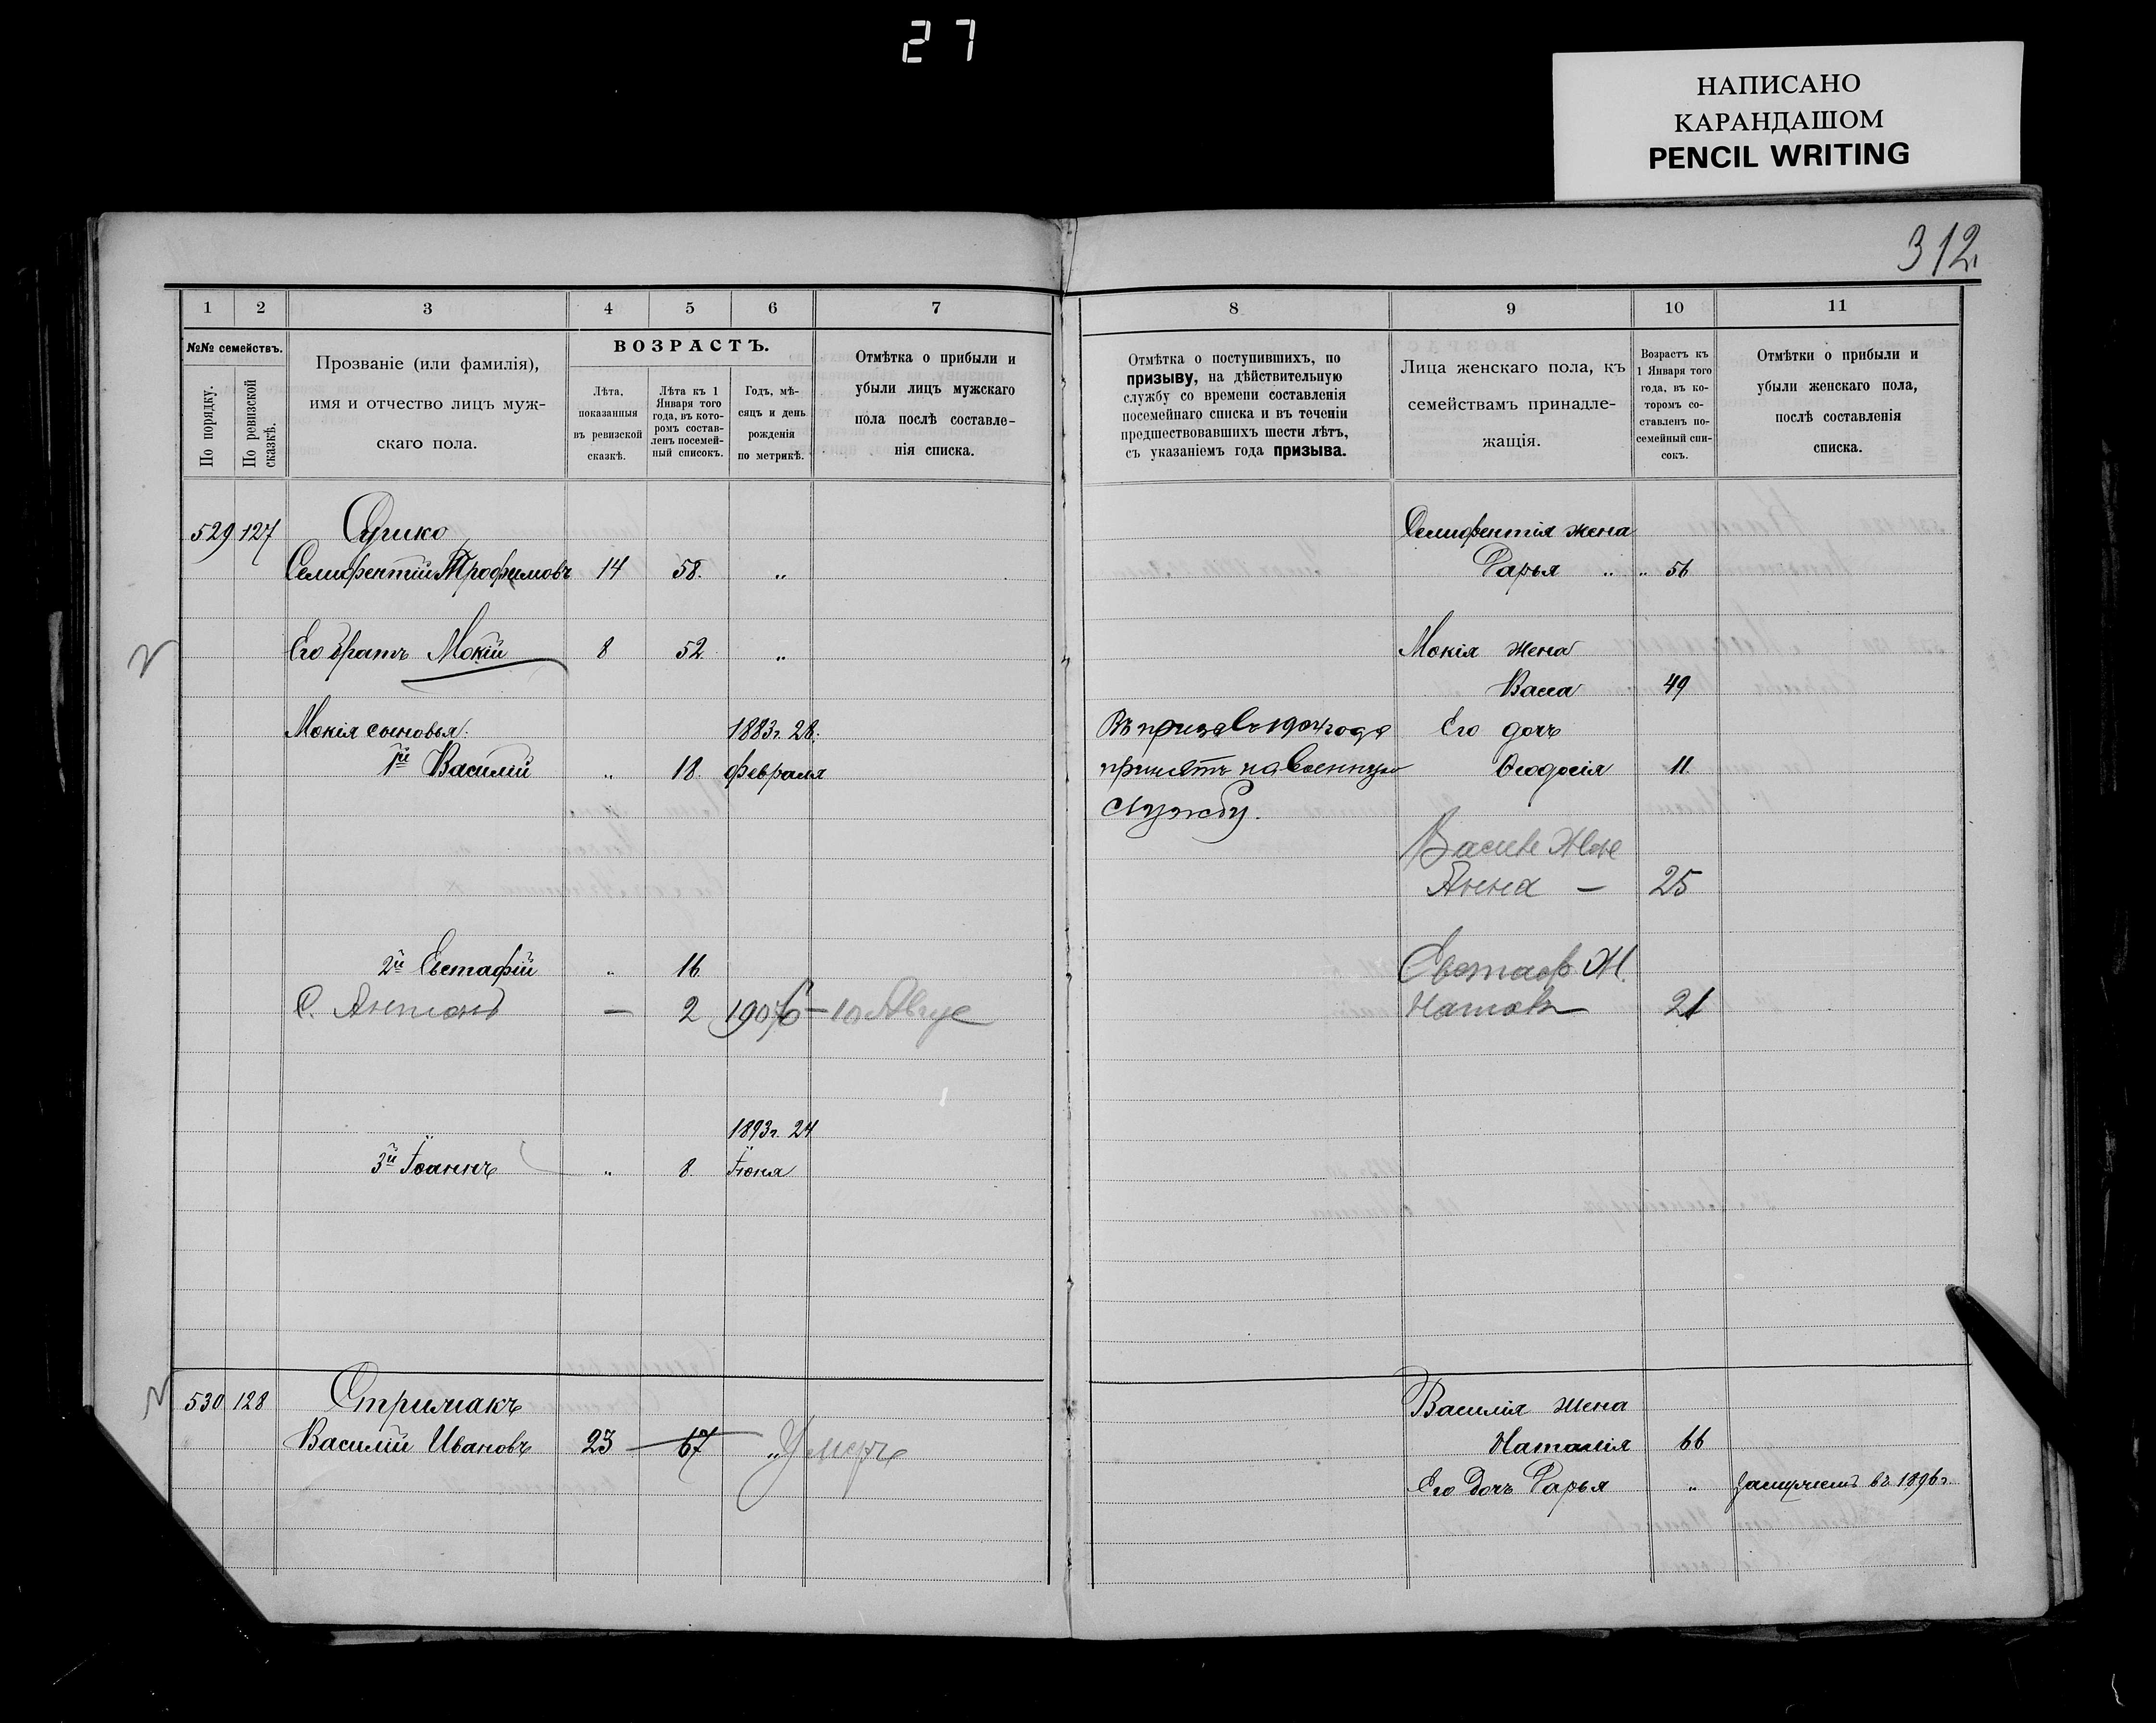 27
НАПИСАНО
КАРАНДАШОМ
PENCIL WRITING
312
1 2 3 4 5 6 7
№№ семействъ.
По порядку.
По ревизской сказкѣ.
Прозваніе (или фамилія),
имя и отчество лицъ муж-
скаго пола.
ВОЗРАСТЪ.
Лѣта,
показанныя
въ ревизской
сказкѣ.
Лѣта къ 1
Января того
года, въ кото-
ромъ состав-
ленъ посемей-
ный списокъ.
Годъ, мѣ-
сяцъ и день
рожденія
по метрикѣ.
Отмѣтка о прибыли и
убыли лицъ мужскаго
пола послѣ составле-
нія списка.
529 127
Трофимовъ 14 58. "
Его братъ Мокій 8 52. "
Мокія сыновья: 1883г. 28.
1й Василій " 18. февраля
2й Евстафій " 16
С. Антонъ — 2 1906 — 10 Авгус
1893г. 24
3й Іоаннъ " 8. Іюня
530 128 Стримакъ
Василій Ивановъ 23 67 " Умеръ
8 9 10 11
Отмѣтка о поступившихъ, по
призыву, на дѣйствительную
службу со времени составленія
посемейнаго списка и въ теченіи
предшествовавшихъ шести лѣтъ,
съ указаніемъ года призыва.
Лица женскаго пола, къ
семействамъ принадле-
жащія.
Возрастъ къ
1 Января того
года, въ ко-
торомъ со-
ставленъ по-
семейный спи-
сокъ.
Отмѣтки о прибыли и
убыли женскаго пола,
послѣ составленія
списка.
жена
Дарья " " 56
Мокія жена
Васса 49
Въ призывъ 1904 года
принятъ на военную
службу.
Его дочь
Ѳеодосія 11
Анна — 25
Евстаф. Ж.
21
Василія жена
Наталія 66
Его дочь Дарья " замужемъ въ 1896г.